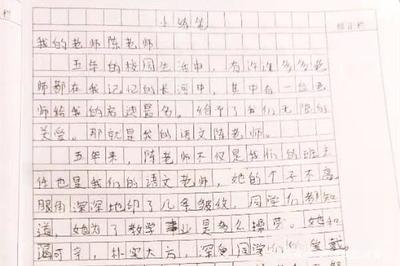 小练笔
我的老师陈老师
五年的校园生活中，有许许多多老
师都在我记忆的长河中，其中有一位老
师给我的启迪最多。给予了我们无限的
关爱。那就是我的语文陈老师。
五年来，陈老师不仅是我们的班主
任也是我们的语文老师，她的个子不高
眼角深深地印了几条皱纹，同学们都知
道，她为了教学事业是多么操劳。她和
蔼可亲，朴实大方，深受同学们的爱戴